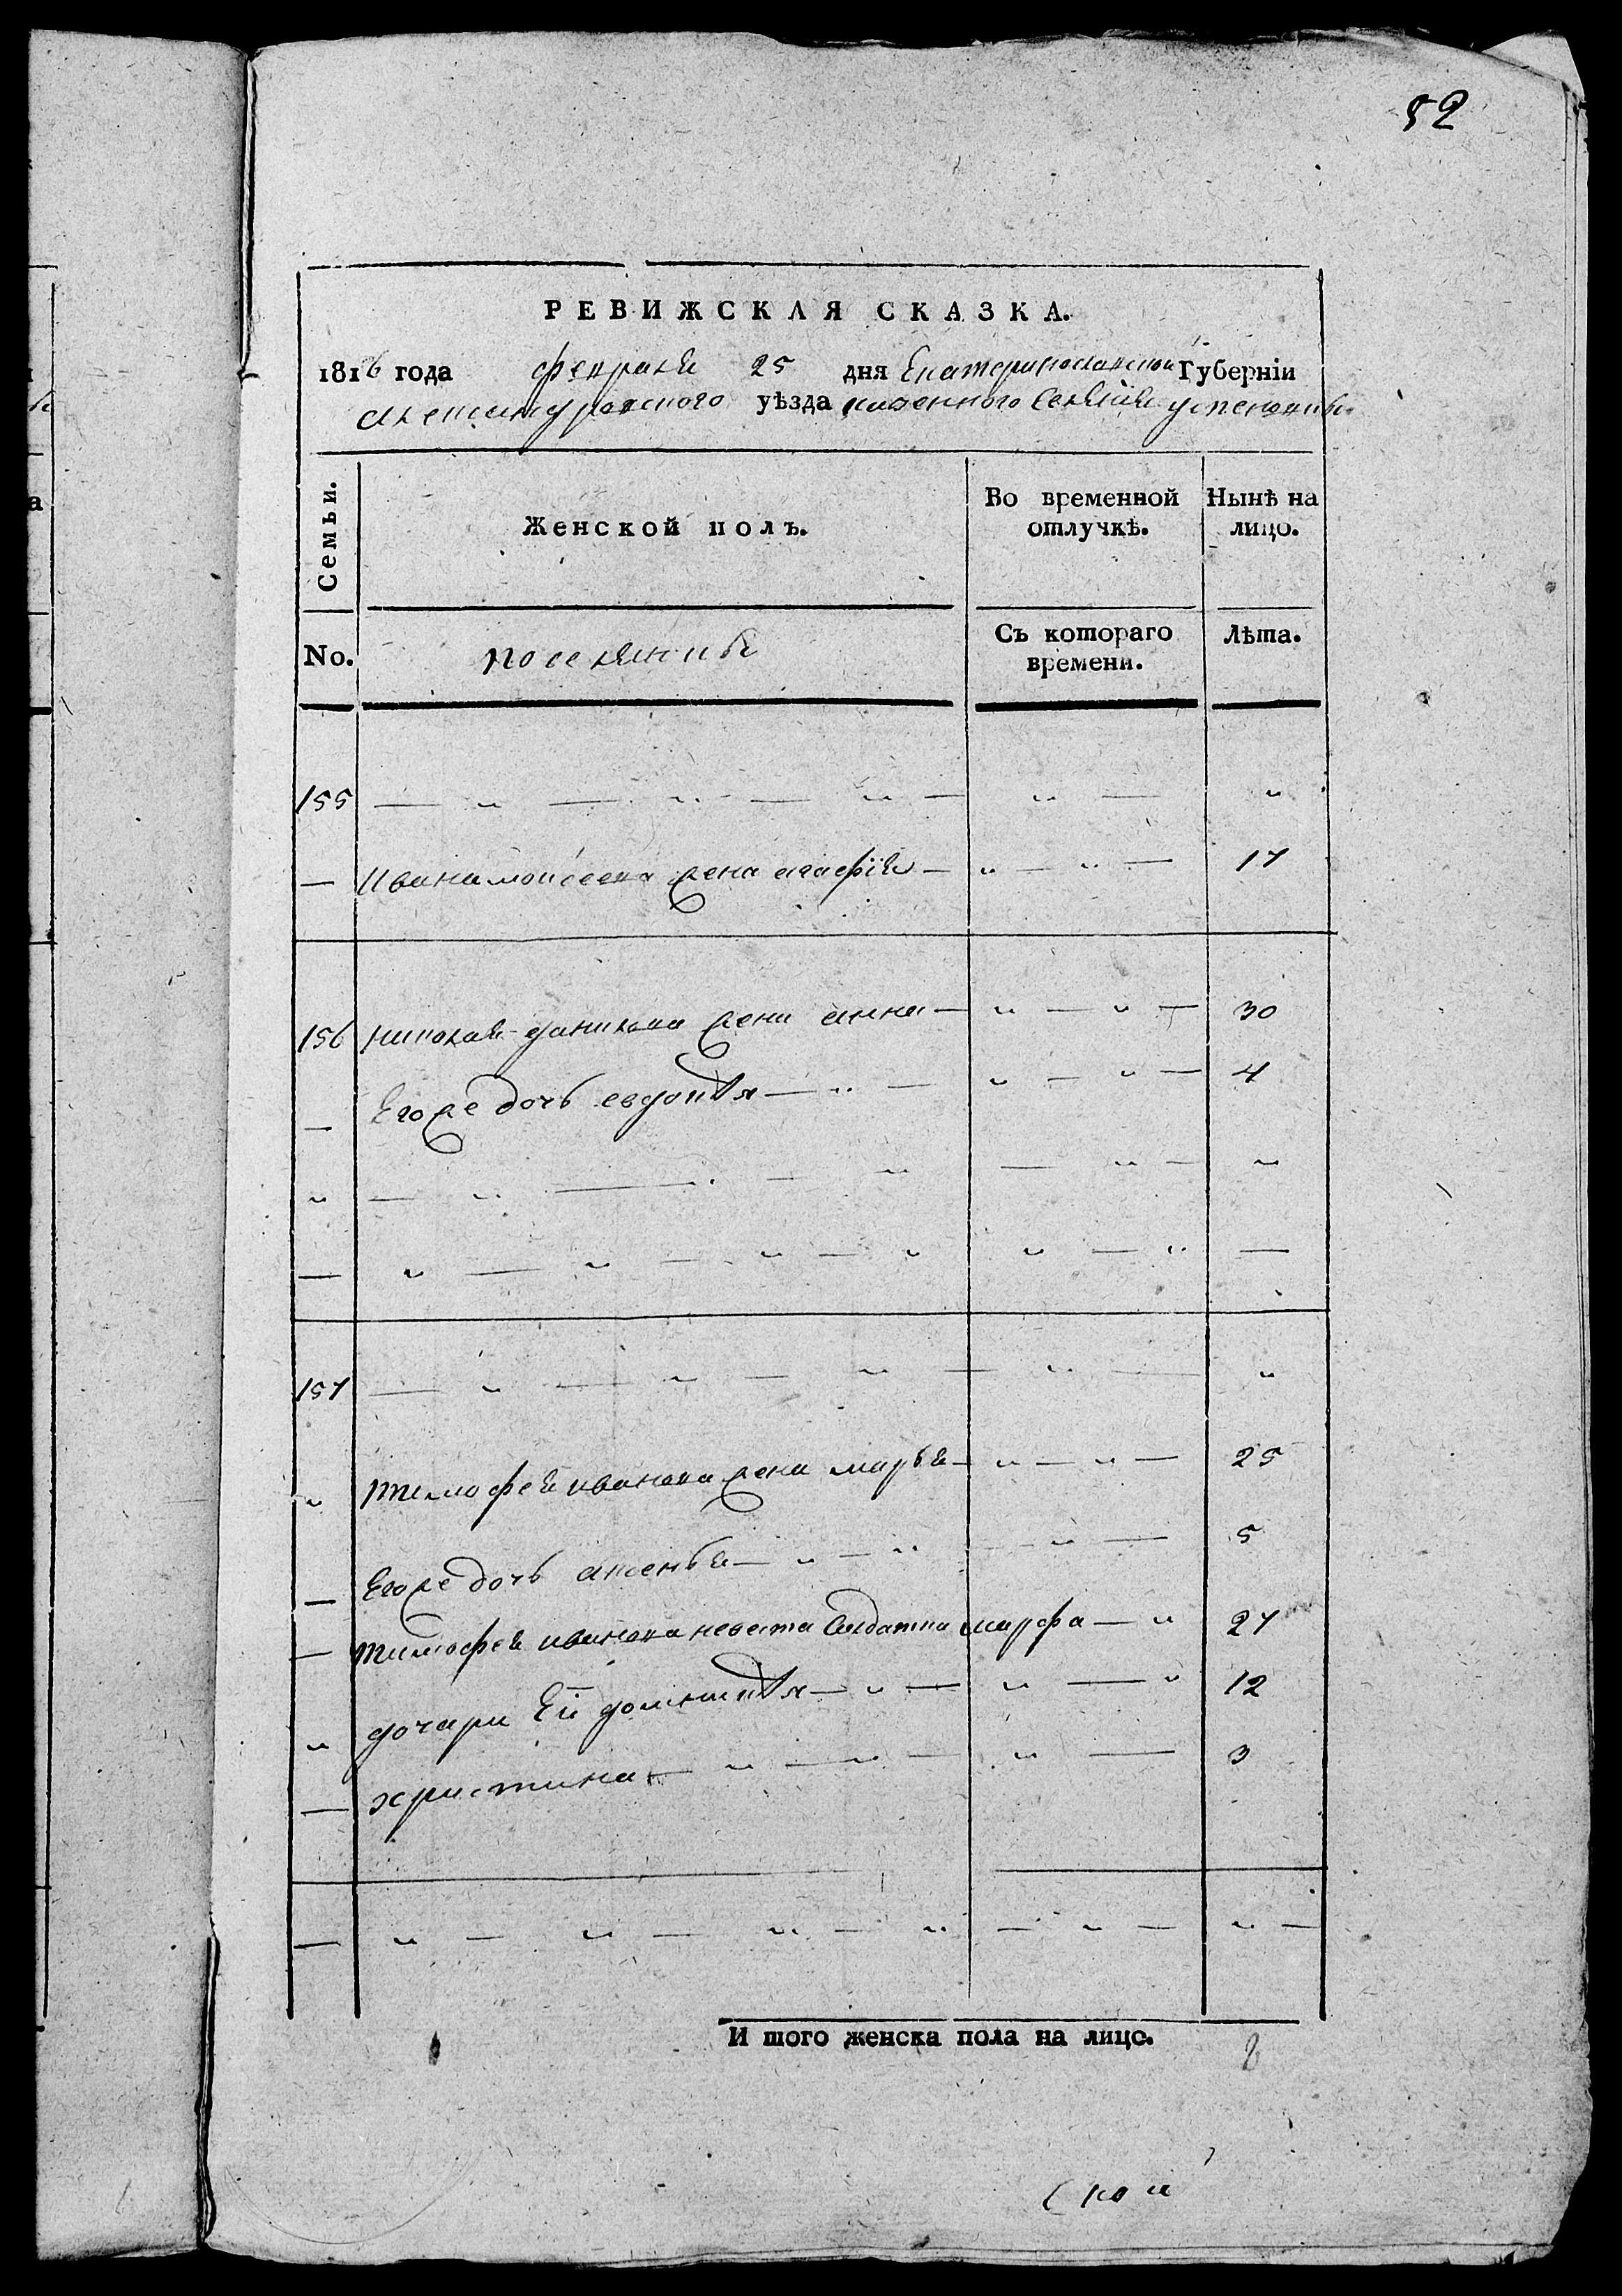 52
РЕВИЖСКАЯ СКАЗКА.
1816 года февраля 25 дня Екатеринославской Губерніи
александровского уѣзда казенного Селенія успеновки
Семьи.
Женской полъ.
Во временной отлучкѣ.
Нынѣ на лицо.
No.
поселяники
Съ котораго времени.
Лѣта.
155 — " — " — " — " — "
— Ивана моисеева жена агафія — " — " — 17
156 николая данилова жена анна — " — " — 30
— Его же дочь евдокия — " — " — " — 4
" — " — — " — " — "
— " — " — " — " " — " —
157 — " — " — " — " — "
" тимофея иванова жена марья — " — " — 25
— Его же дочь аксенья — " — " — " — 5
— тимофея иванова невеста Солдатка марфа — " 27
" дочери Ей домникия — " — " — " 12
— христина — " — " — " — 3
— " — " — " — " — " — " —
И того женска пола на лицо. 8